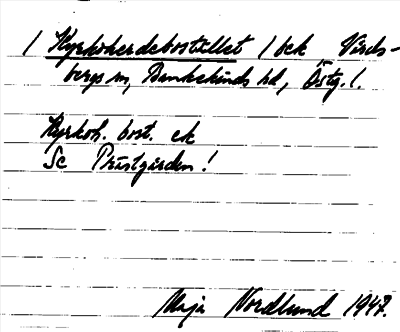 / Kyrkoherdebostället / bek Vårds-
bergs sn, Bankekinds hd, Östg. l.
Kyrkoh. bost. ek
Se Prästgården!
Maja Nordlund 1947.